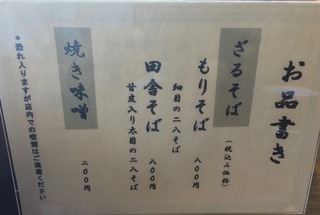 お品書き
ざるそば
(税込み価格)
もりそば 八〇〇円
細目の二八そば
田舎そば 八〇〇円
甘皮入り太目の二八そば
焼き味噌 二〇〇円
*恐れ入りますが店内での喫煙はご遠慮ください